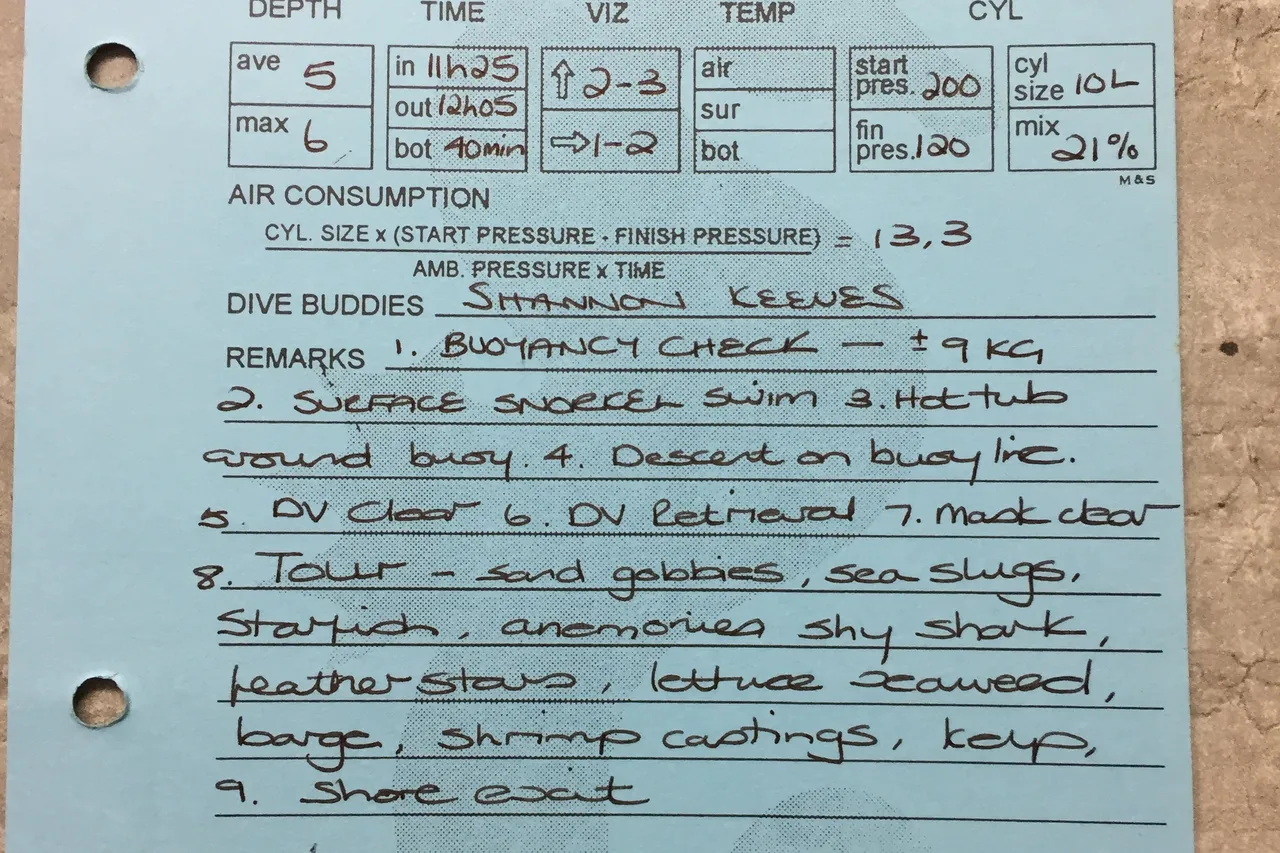 DEPTH TIME VIZ TEMP CYL
ave 5 in 11h25 ⇧ 2-3 air start pres. 200 cyl size 10L
max 6 out 12h05 ⇨ 1-2 sur fin pres. 120 mix 21%
bot 40min bot
M&S
AIR CONSUMPTION
CYL. SIZE x (START PRESSURE - FINISH PRESSURE) = 13,3
AMB. PRESSURE x TIME
DIVE BUDDIES SHANNON KEEVES
REMARKS 1. BUOYANCY CHECK — ±9 KG
2. SURFACE SNORKEL SWIM 3. Hot tub
around buoy. 4. Descent on buoy line.
5. DV Clear 6. DV Retrieval 7. Mask clear
8. Tour - sand gobbies, sea slugs,
Starfish, anemonies shy shark,
feather stars, lettuce seaweed,
barge, shrimp castings, kelp,
9. Shore exit